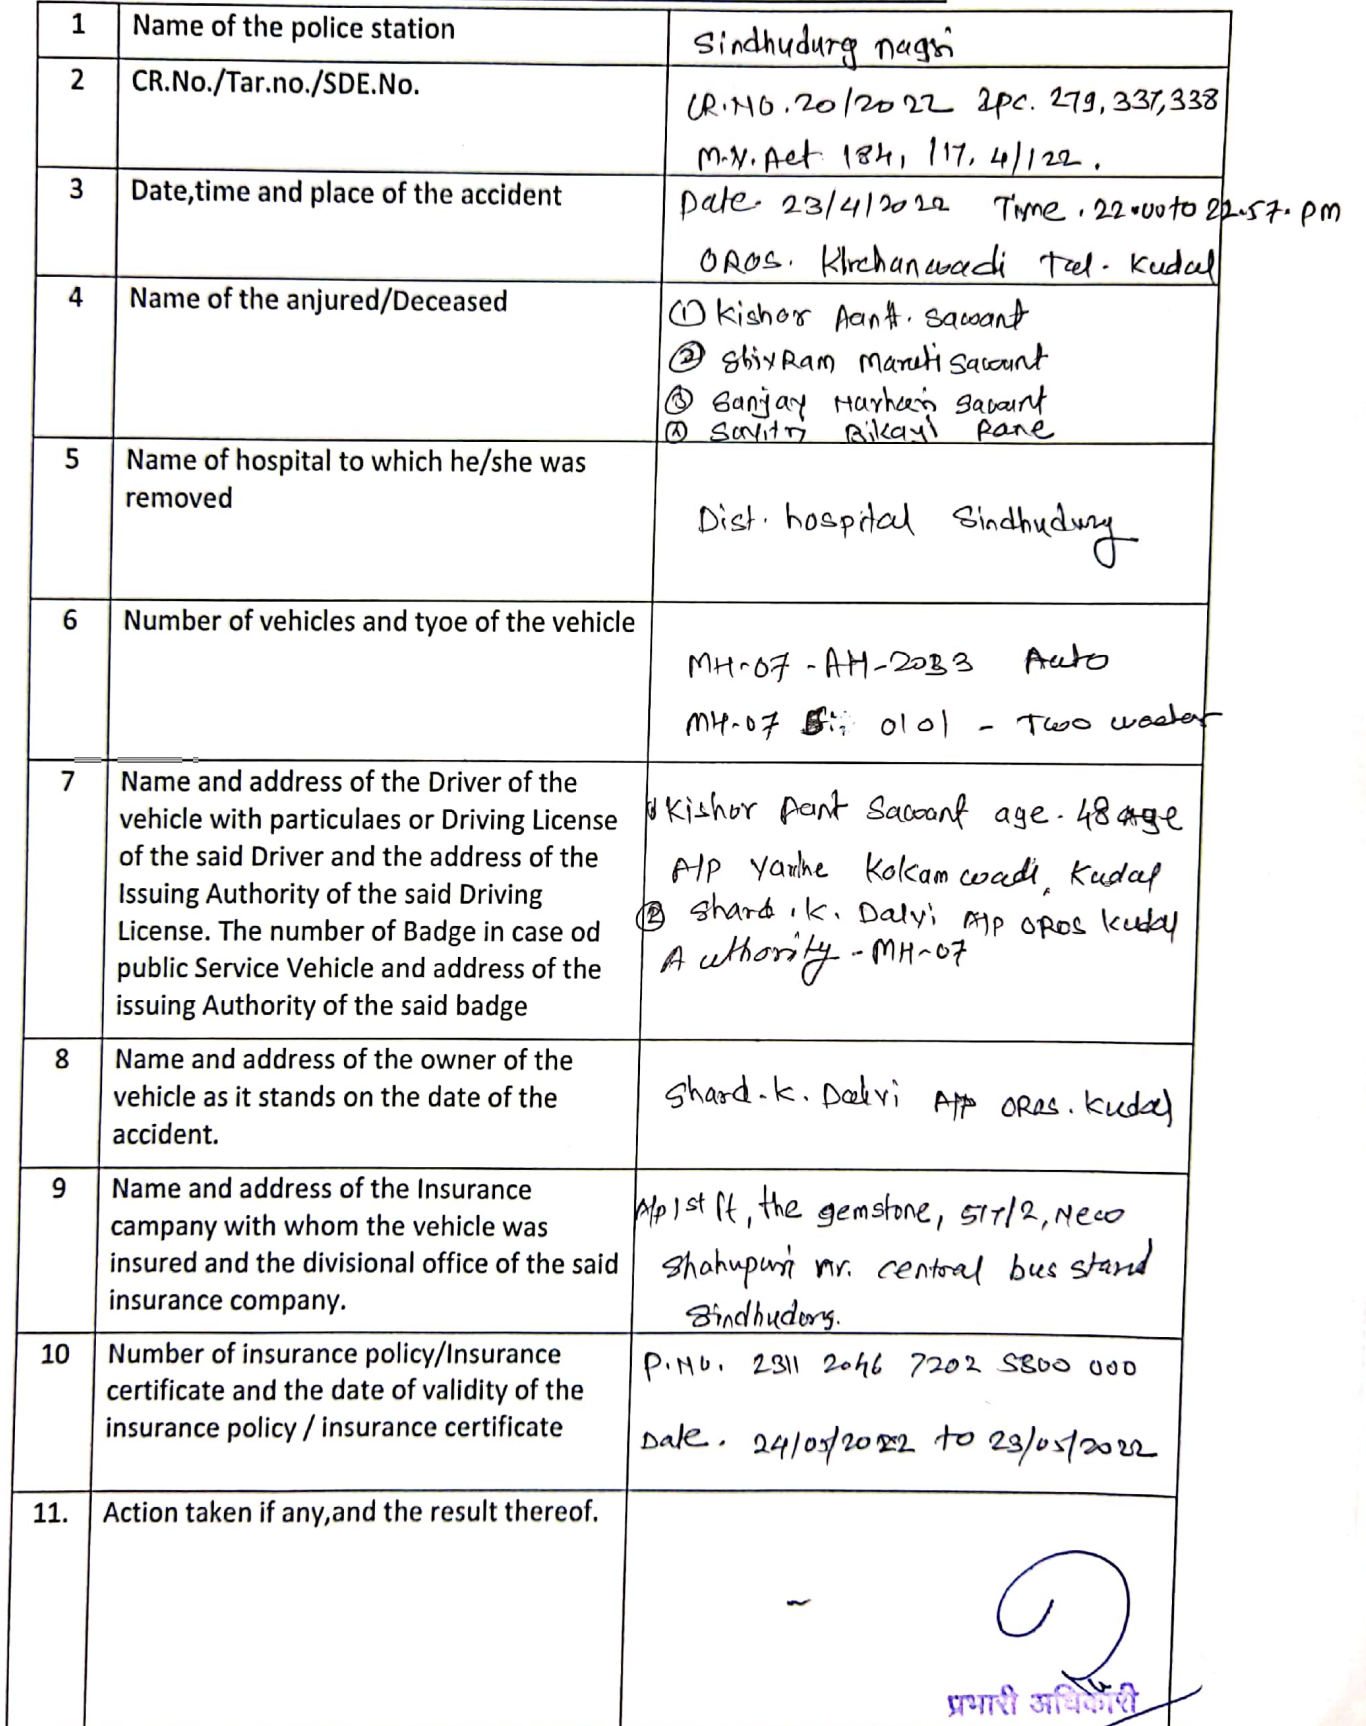 1 Name of the police station Sindhudurg nagri
2 CR.No./Tar.no./SDE.No. CR.NO.20/2022 Ipc. 279,337,338
M.V. Act 184, 117, 4/122.
3 Date,time and place of the accident Date. 23/4/2022 Time. 22.00 to 22.57. pm
OROS. Tal. Kudal
4 Name of the anjured/Deceased ① Kishor Sawant
② ShivRam Maruti Sawant
③ Sanjay Sawant
④ Rane
5 Name of hospital to which he/she was
removed
Dist. hospital Sindhudurg
6 Number of vehicles and tyoe of the vehicle
MH-07-AH-2033 Auto
MH-07 0101 - Two
7 Name and address of the Driver of the
vehicle with particulaes or Driving License
of the said Driver and the address of the
Issuing Authority of the said Driving
License. The number of Badge in case od
public Service Vehicle and address of the
issuing Authority of the said badge
Kishor Sawant age. 48 age
A/P Kokam wadi, Kudal
② Shard. K. Dalvi A/P OROS Kudal
Authority - MH-07
8 Name and address of the owner of the
vehicle as it stands on the date of the
accident.
Shard. K. Dalvi A/P OROS. Kudal
9 Name and address of the Insurance
campany with whom the vehicle was
insured and the divisional office of the said
insurance company.
A/p 1st the gemstone, 517/2,
Shahupuri nr. central bus stand
Sindhudurg.
10 Number of insurance policy/Insurance
certificate and the date of validity of the
insurance policy / insurance certificate
P.No. 2311 2046 7202 5800 000
Date. 24/05/2022 to 23/05/2022
11. Action taken if any,and the result thereof.
-
प्रभारी अधिकारी